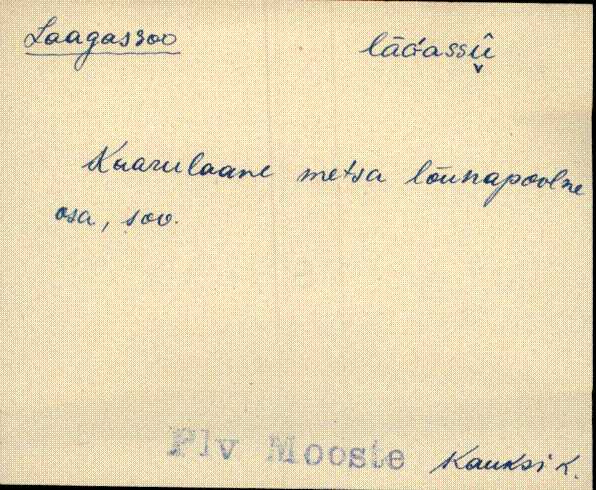 Laagassoo
Kaarulaane metsa lõunapoolne
osa, soo.
Plv Mooste
Kauksi k.